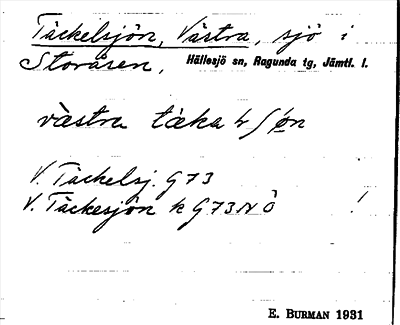 Täckelsjön, Västra, sjö i
Storåsen, Hällesjö sn, Ragunda tg, Jämtl. l.
västra
V. Täckelsj. G73
V. Täckesjön k G73NÖ !
E. BURMAN 1931